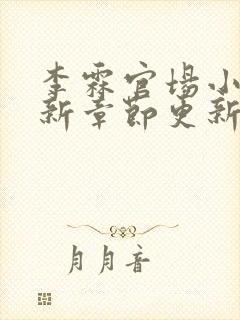 李霖官场小
新章节更新
月月音